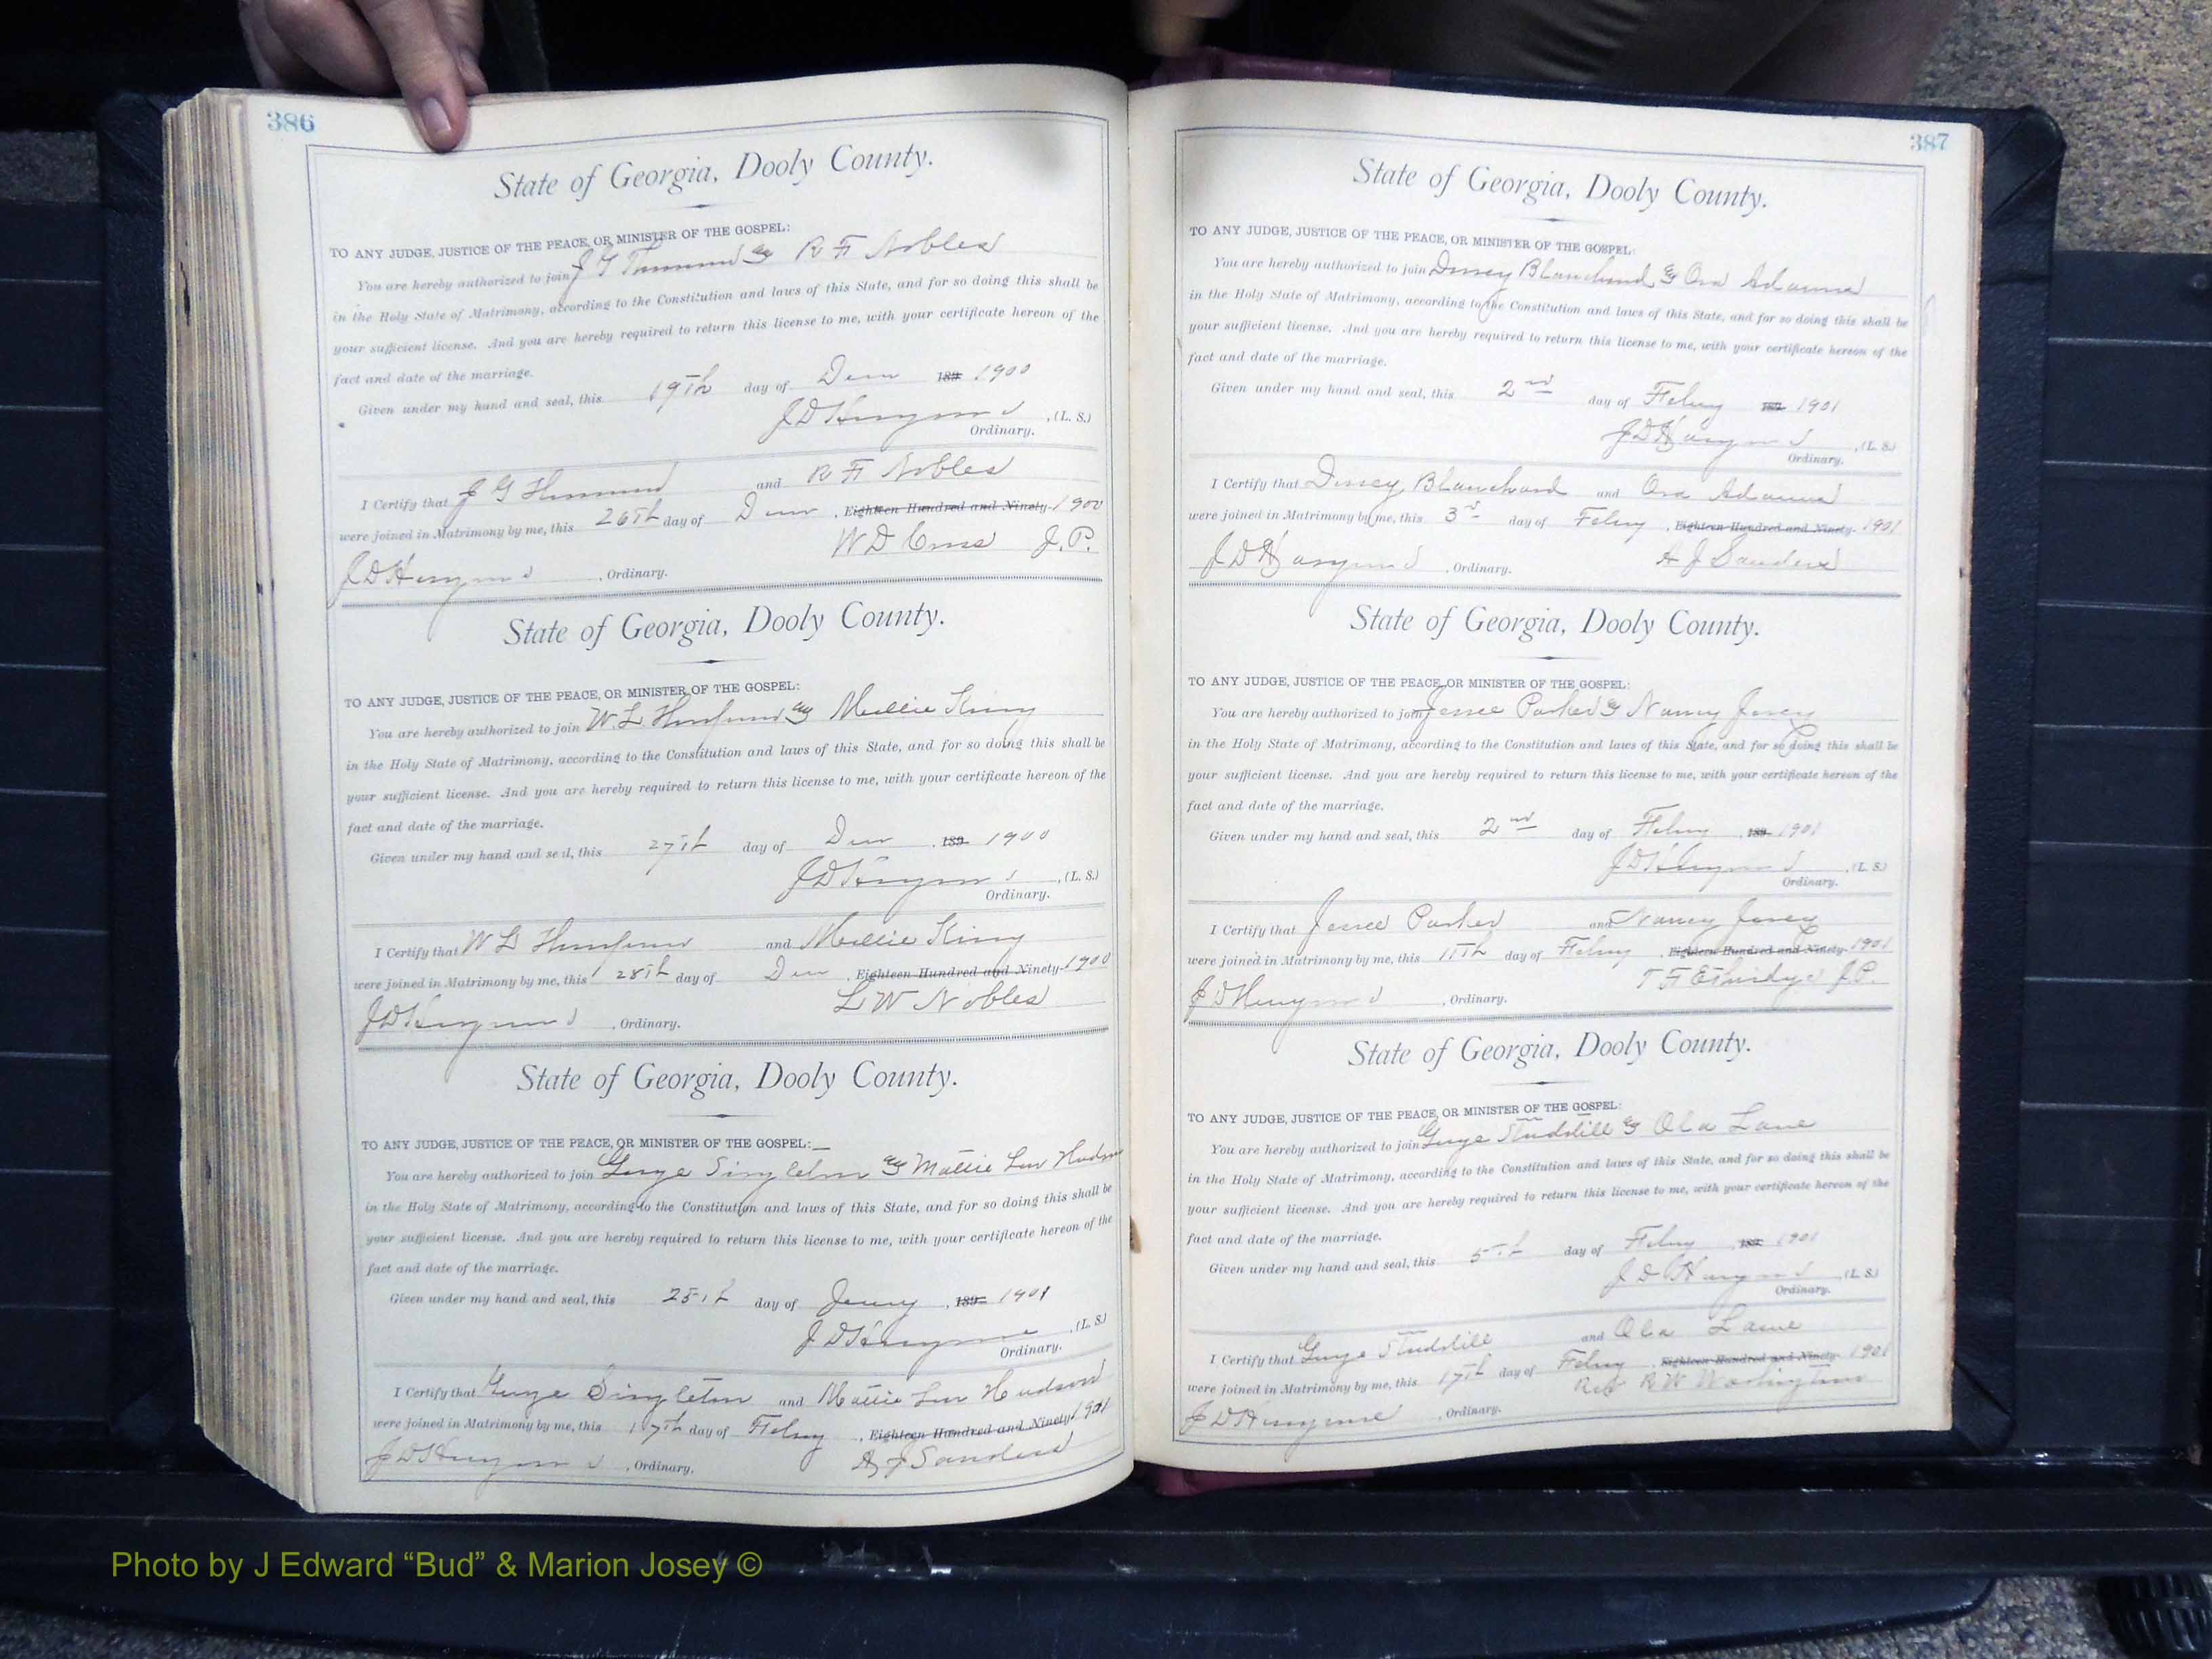 386
State of Georgia, Dooly County.
TO ANY JUDGE, JUSTICE OF THE PEACE, OR MINISTER OF THE GOSPEL:
You are hereby authorized to join J G & R F Nobles
in the Holy State of Matrimony, according to the Constitution and laws of this State, and for so doing this shall be
your sufficient license. And you are hereby required to return this license to me, with your certificate hereon of the
fact and date of the marriage.
Given under my hand and seal, this 19th day of 189 1900
J D , (L. S.)
Ordinary.
I Certify that J G and R F Nobles
were joined in Matrimony by me, this 26th day of , Eighteen Hundred and Ninety- 1900
W D J. P.
J D , Ordinary.
State of Georgia, Dooly County.
TO ANY JUDGE, JUSTICE OF THE PEACE, OR MINISTER OF THE GOSPEL:
You are hereby authorized to join W. L & Mollie King
in the Holy State of Matrimony, according to the Constitution and laws of this State, and for so doing this shall be
your sufficient license. And you are hereby required to return this license to me, with your certificate hereon of the
fact and date of the marriage.
Given under my hand and seal, this 27th day of , 189 1900
J D , (L. S.)
Ordinary.
I Certify that W L and Mollie King
were joined in Matrimony by me, this 28th day of , Eighteen Hundred and Ninety- 1900
L W Nobles
J D , Ordinary.
State of Georgia, Dooly County.
TO ANY JUDGE, JUSTICE OF THE PEACE, OR MINISTER OF THE GOSPEL:
You are hereby authorized to join George Singleton & Mattie Lou Hudson
in the Holy State of Matrimony, according to the Constitution and laws of this State, and for so doing this shall be
your sufficient license. And you are hereby required to return this license to me, with your certificate hereon of the
fact and date of the marriage.
Given under my hand and seal, this 25th day of , 189 1901
J D , (L. S.)
Ordinary.
I Certify that George Singleton and Mattie Lou Hudson
were joined in Matrimony by me, this 17th day of Febuy , Eighteen Hundred and Ninety 1901
A J Sanders
J D , Ordinary.
387
State of Georgia, Dooly County.
TO ANY JUDGE, JUSTICE OF THE PEACE, OR MINISTER OF THE GOSPEL:
You are hereby authorized to join Blanchard & Ora Adams
in the Holy State of Matrimony, according to the Constitution and laws of this State, and for so doing this shall be
your sufficient license. And you are hereby required to return this license to me, with your certificate hereon of the
fact and date of the marriage.
Given under my hand and seal, this 2nd day of Febuy 189 1901
J D , (L. S.)
Ordinary.
I Certify that Blanchard and Ora Adams
were joined in Matrimony by me, this 3rd day of Febuy , Eighteen Hundred and Ninety- 1901
J D , Ordinary. A J Sanders
State of Georgia, Dooly County.
TO ANY JUDGE, JUSTICE OF THE PEACE, OR MINISTER OF THE GOSPEL:
You are hereby authorized to join Jessee Parker & Nancy Josey
in the Holy State of Matrimony, according to the Constitution and laws of this State, and for so doing this shall be
your sufficient license. And you are hereby required to return this license to me, with your certificate hereon of the
fact and date of the marriage.
Given under my hand and seal, this 2nd day of Febuy , 189 1901
J D , (L. S.)
Ordinary.
I Certify that Jessee Parker and Nancy Josey
were joined in Matrimony by me, this 11th day of Febuy , Eighteen Hundred and Ninety- 1901
T F Ethridge J.P.
J D , Ordinary.
State of Georgia, Dooly County.
TO ANY JUDGE, JUSTICE OF THE PEACE, OR MINISTER OF THE GOSPEL:
You are hereby authorized to join George Studstill & Ola Lane
in the Holy State of Matrimony, according to the Constitution and laws of this State, and for so doing this shall be
your sufficient license. And you are hereby required to return this license to me, with your certificate hereon of the
fact and date of the marriage.
Given under my hand and seal, this 5th day of Febuy , 189 1901
J D , (L. S.)
Ordinary.
I Certify that George Studstill and Ola Lane
were joined in Matrimony by me, this 17th day of Febuy , Eighteen Hundred and Ninety- 1901
Rev R W Washington
J D , Ordinary.
Photo by J Edward “Bud” & Marion Josey ©